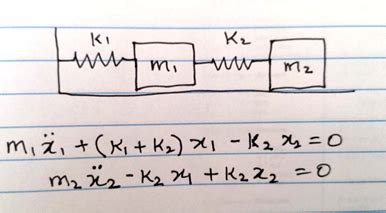 K1 K2
m1 m2
m1ẍ1 + (K1 + K2) x1 - K2 x2 = 0
m2 ẍ2 - K2 x1 + K2 x2 = 0